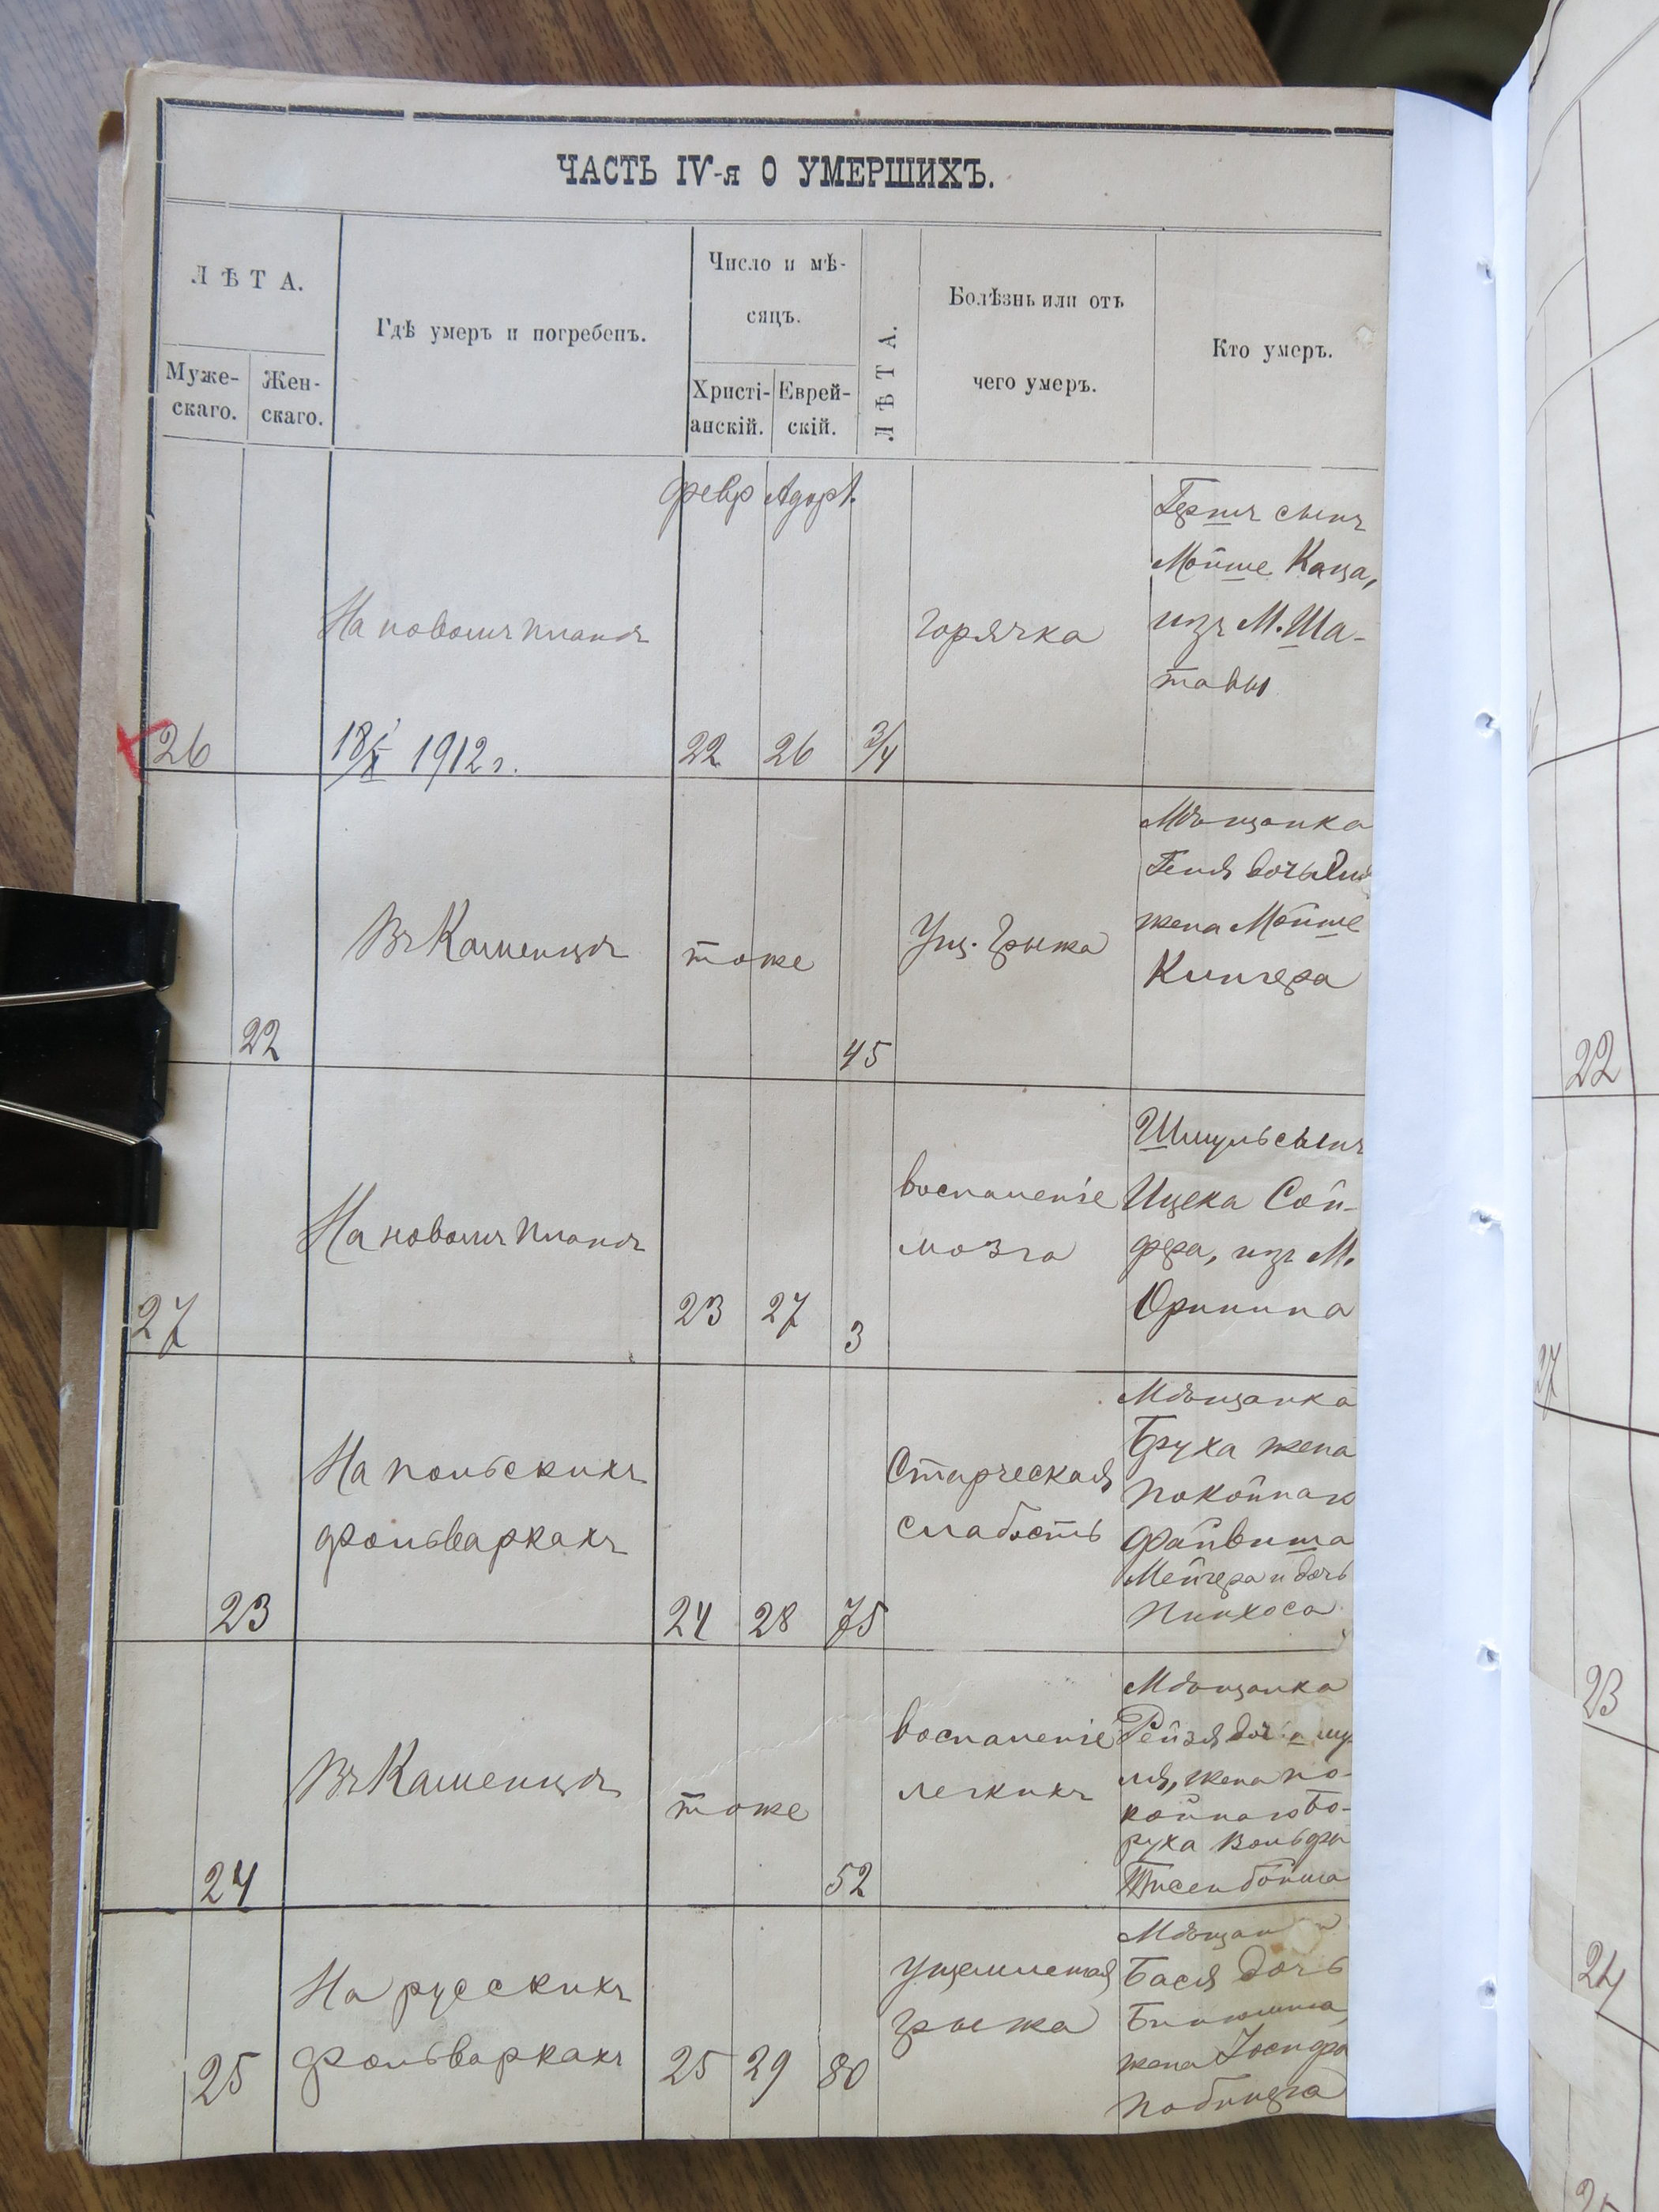 ЧАСТЬ IV-я О УМЕРШИХЪ.
ЛѢТА.
Муже-
скаго.
Жен-
скаго.
Гдѣ умеръ и погребенъ.
Число и мѣ-
сяцъ.
Христі-
анскій.
Еврей-
скій.
ЛѢТА.
Болѣзнь или отъ
чего умеръ.
Кто умеръ.
февр
26
На новомъ планѣ
18/X 1912 г.
22
26
3/4
горячка
Гершъ сынъ
Мойше Каца,
изъ М. Ша-
тавы
22
Въ Каменцѣ
тоже
45
Ущ. грыжа
Мѣщанка
Геня дочь
жена Мойше
27
На новомъ планѣ
23
27
3
воспаленіе
мозга
Шмуль сынъ
Ицека Сой-
фера, изъ М.
Оринина
23
На польскихъ
фольваркахъ
24
28
75
Старческая
слабость
Мѣщанка
Бруха жена
покойнаго
Файвиша
и дочь
Пинхоса
24
Въ Каменцѣ
тоже
52
воспаленіе
легкихъ
Мѣщанка
Рейзя
жена по-
койнаго Бо-
руха
25
На русскихъ
фольваркахъ
25
29
80
ущемлетая
грыжа
Бася дочь
жена Іосифа
22
27
23
24
25